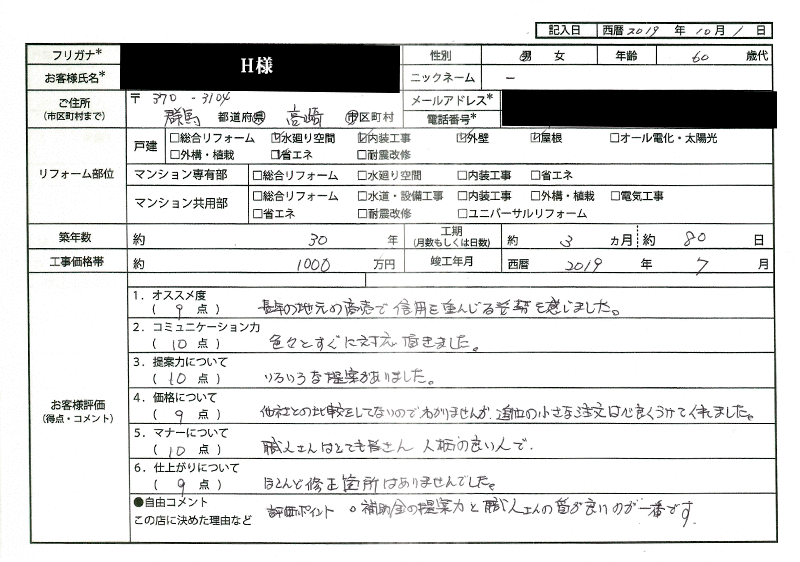 記入日 西暦 2019 年 10 月 1 日
フリガナ* H様 性別 男 女 年齢 60 歳代
お客様氏名* ニックネーム −
ご住所 (市区町村まで) 〒 370 - 3104 メールアドレス*
群馬 都道府県 高崎 市区町村 電話番号*
リフォーム部位 戸建 □総合リフォーム ☑水廻り空間 ☑内装工事 ☑外壁 ☑屋根 □オール電化・太陽光
□外構・植栽 ☑省エネ □耐震改修
マンション専有部 □総合リフォーム □水廻り空間 □内装工事 □省エネ
マンション共用部 □総合リフォーム □水道・設備工事 □内装工事 □外構・植栽 □電気工事
□省エネ □耐震改修 □ユニバーサルリフォーム
築年数 約 30 年 工期 (月数もしくは日数) 約 3 ヵ月 約 80 日
工事価格帯 約 1000 万円 竣工年月 西暦 2019 年 7 月
お客様評価 (得点・コメント)
1．オススメ度
( 9 点 ) 長年の地元の商売で信用を重んじる姿勢を感じました。
2．コミュニケーション力
( 10 点 ) 色々とすぐに対応頂きました。
3．提案力について
( 10 点 ) いろいろな提案がありました。
4．価格について
( 9 点 ) 他社との比較をしてないのでわかりませんが、追加の小さな注文は心良くうけてくれました。
5．マナーについて
( 10 点 ) 職人さんはとても皆さん 人柄の良い人で.
6．仕上がりについて
( 9 点 ) ほとんど修正箇所はありませんでした。
●自由コメント
この店に決めた理由など 評価ポイント 。補助金の提案力と職人さんの質が良いのが一番です.